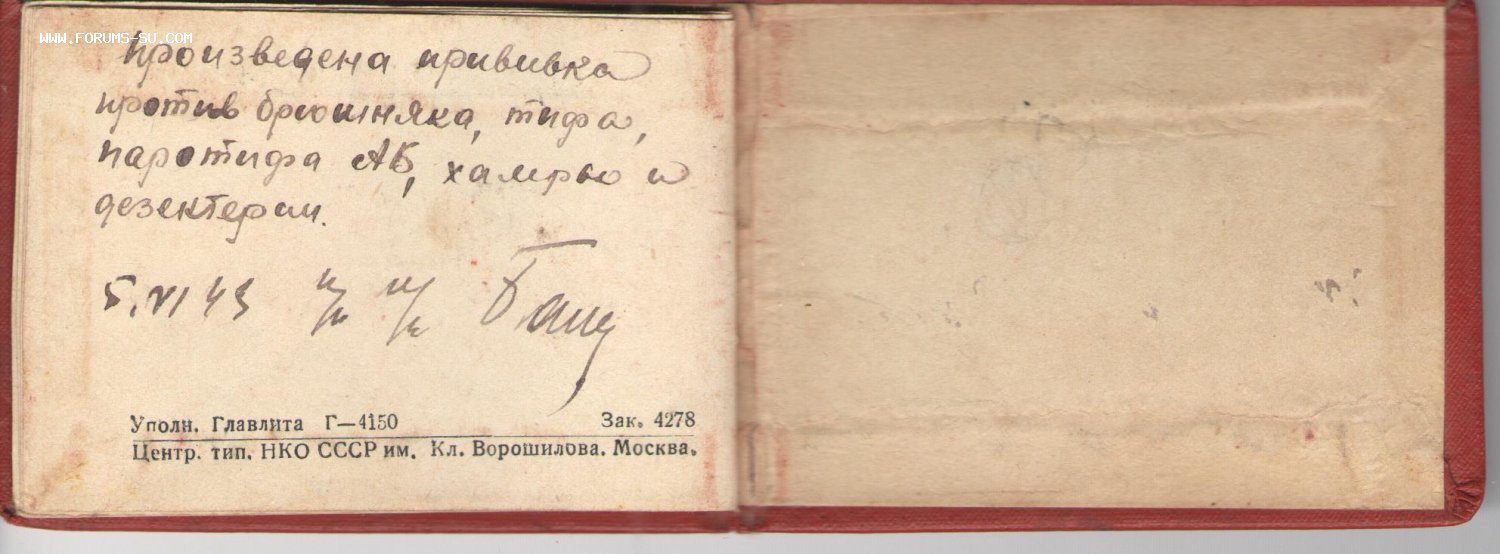 www.forums-su.com
произведена прививка
против брюшняка, тифа,
паротифа АБ, хамры и
дезектерии.
5.VI 43
Уполн. Главлита Г—4150 Зак. 4278
Центр. тип. НКО СССР им. Кл. Ворошилова. Москва.